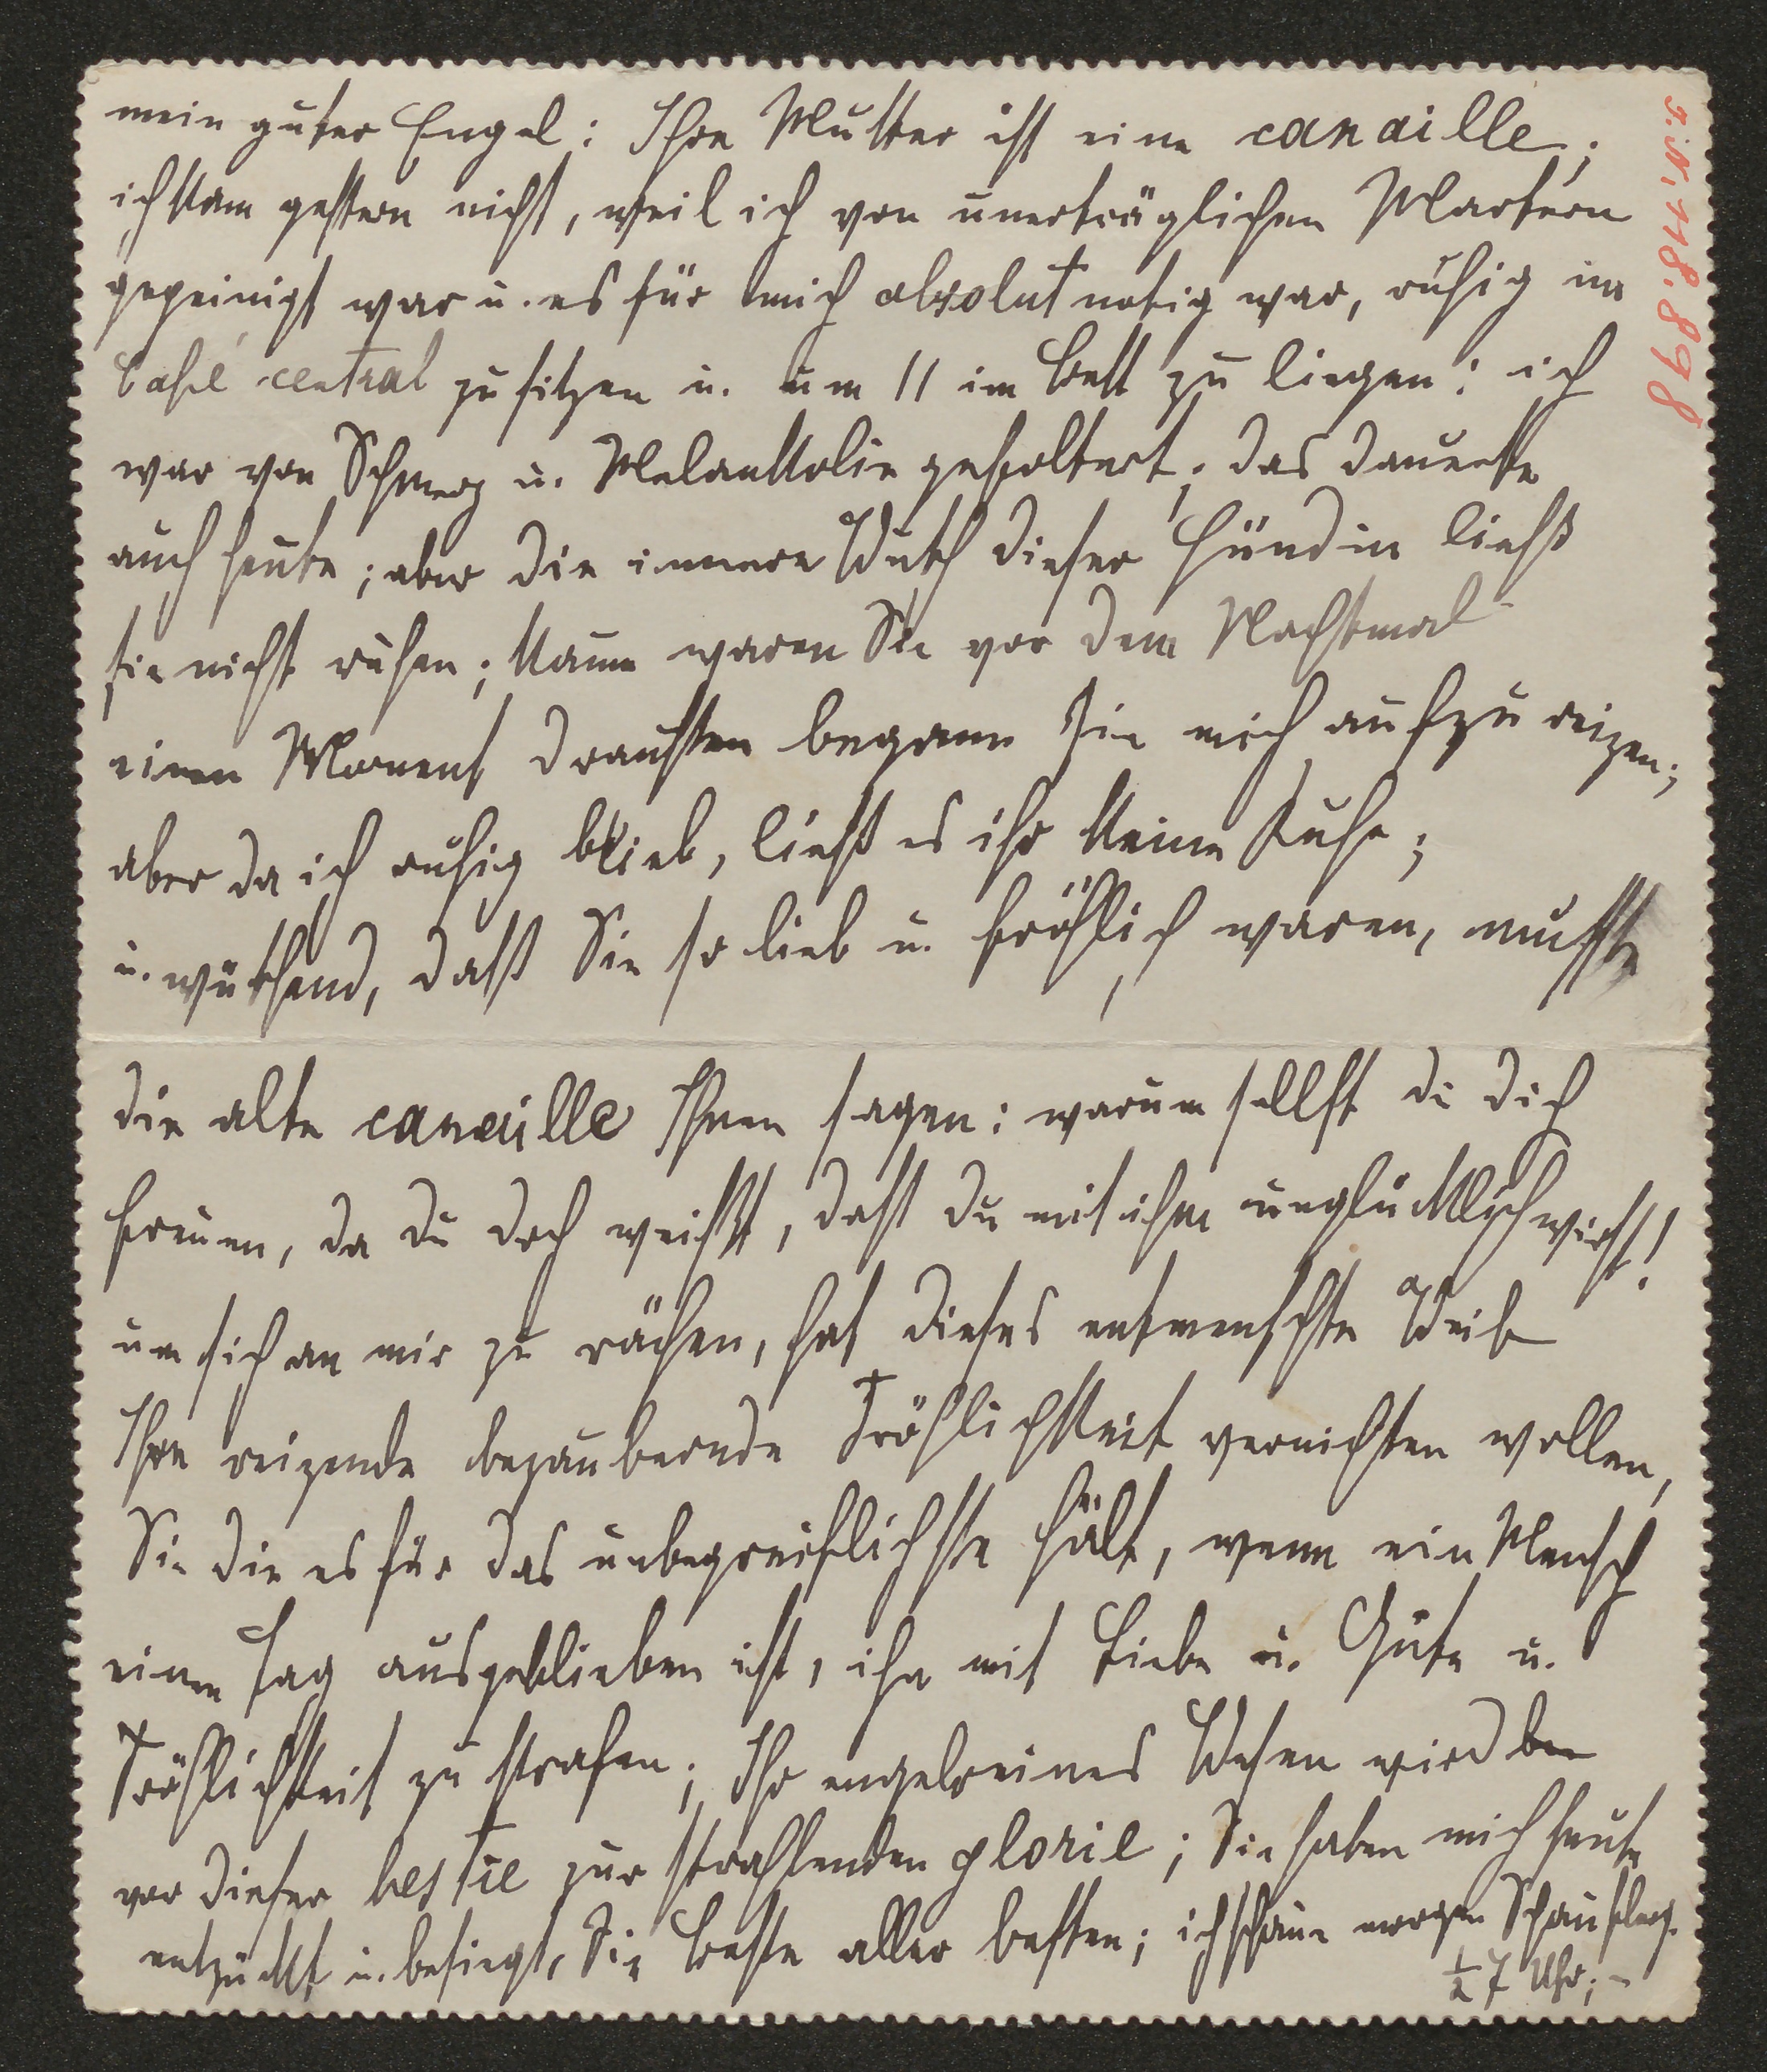 mein guter Engel: Ihre Mutter ist eine canaille;
ich kam gestern nicht, weil ich von unerträglichen Martern
gepeinigt war u. es für mich absolut notig war, ruhig im
Café central zu sitzen u. um 11 im Bett zu liegen: ich
war von Schmerz u. Melankolie gefoltert; das dauerte
auch heute; aber die innere Wuth dieser Hündin ließ
sie nicht ruhen; kaum waren Sie vor dem Nachtmal
einen Moment draußen begann sie mich aufzureizen;
aber da ich ruhig blieb, ließ es ihr keine Ruhe;
u. wüthend, daß Sie so lieb u. fröhlich waren, musste
die alte canaille Ihnen sagen: warum sollst du dich
freuen, da du doch weißt, daß du mit ihm unglücklich wirst!
um sich an mir zu rächen, hat dieses entmenschte Weib
Ihre reizende bezaubernde Fröhlichkeit vernichten wollen,
Sie die es für das unbegreiflichste hält, wenn ein Mensch
einen Tag ausgeblieben ist, ihn mit Liebe u. Güte u.
Fröhlichkeit zu strafen; Ihr engelreines Wesen wird
vor dieser bestie zur strahlenden glorie; Sie haben mich heute
entzückt u. besiegt, Sie Beste aller besten; ich schaue morgen Schauflerg.
½ 7 Uhr; –
I.N. 118.898